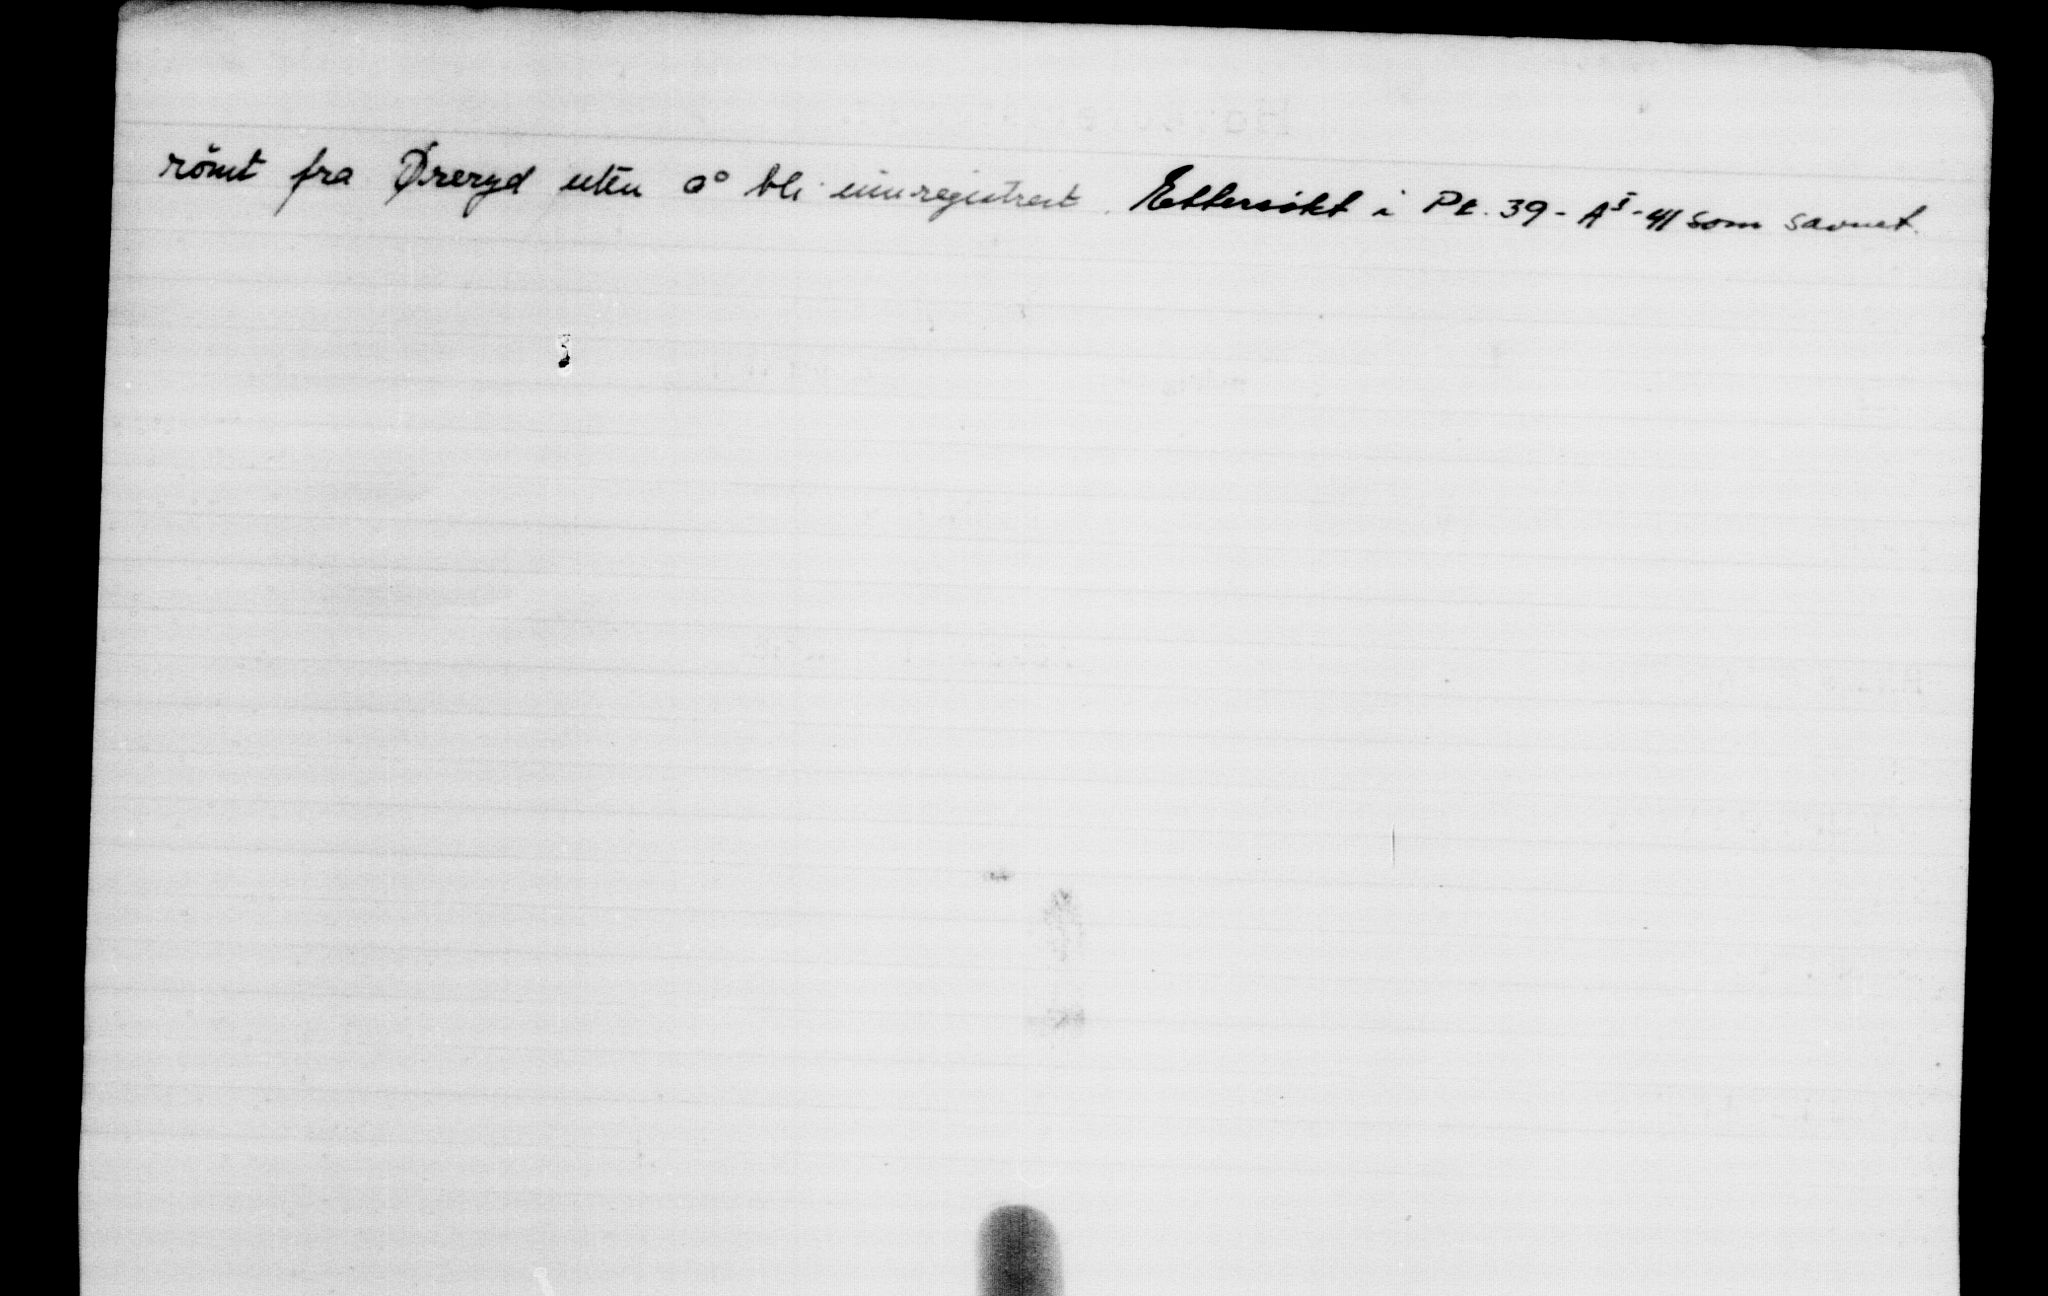 römt fra Øreryd uten å bli innregistrert. Ettersökt i Pt. 39 - A^I - 41 som savnet.